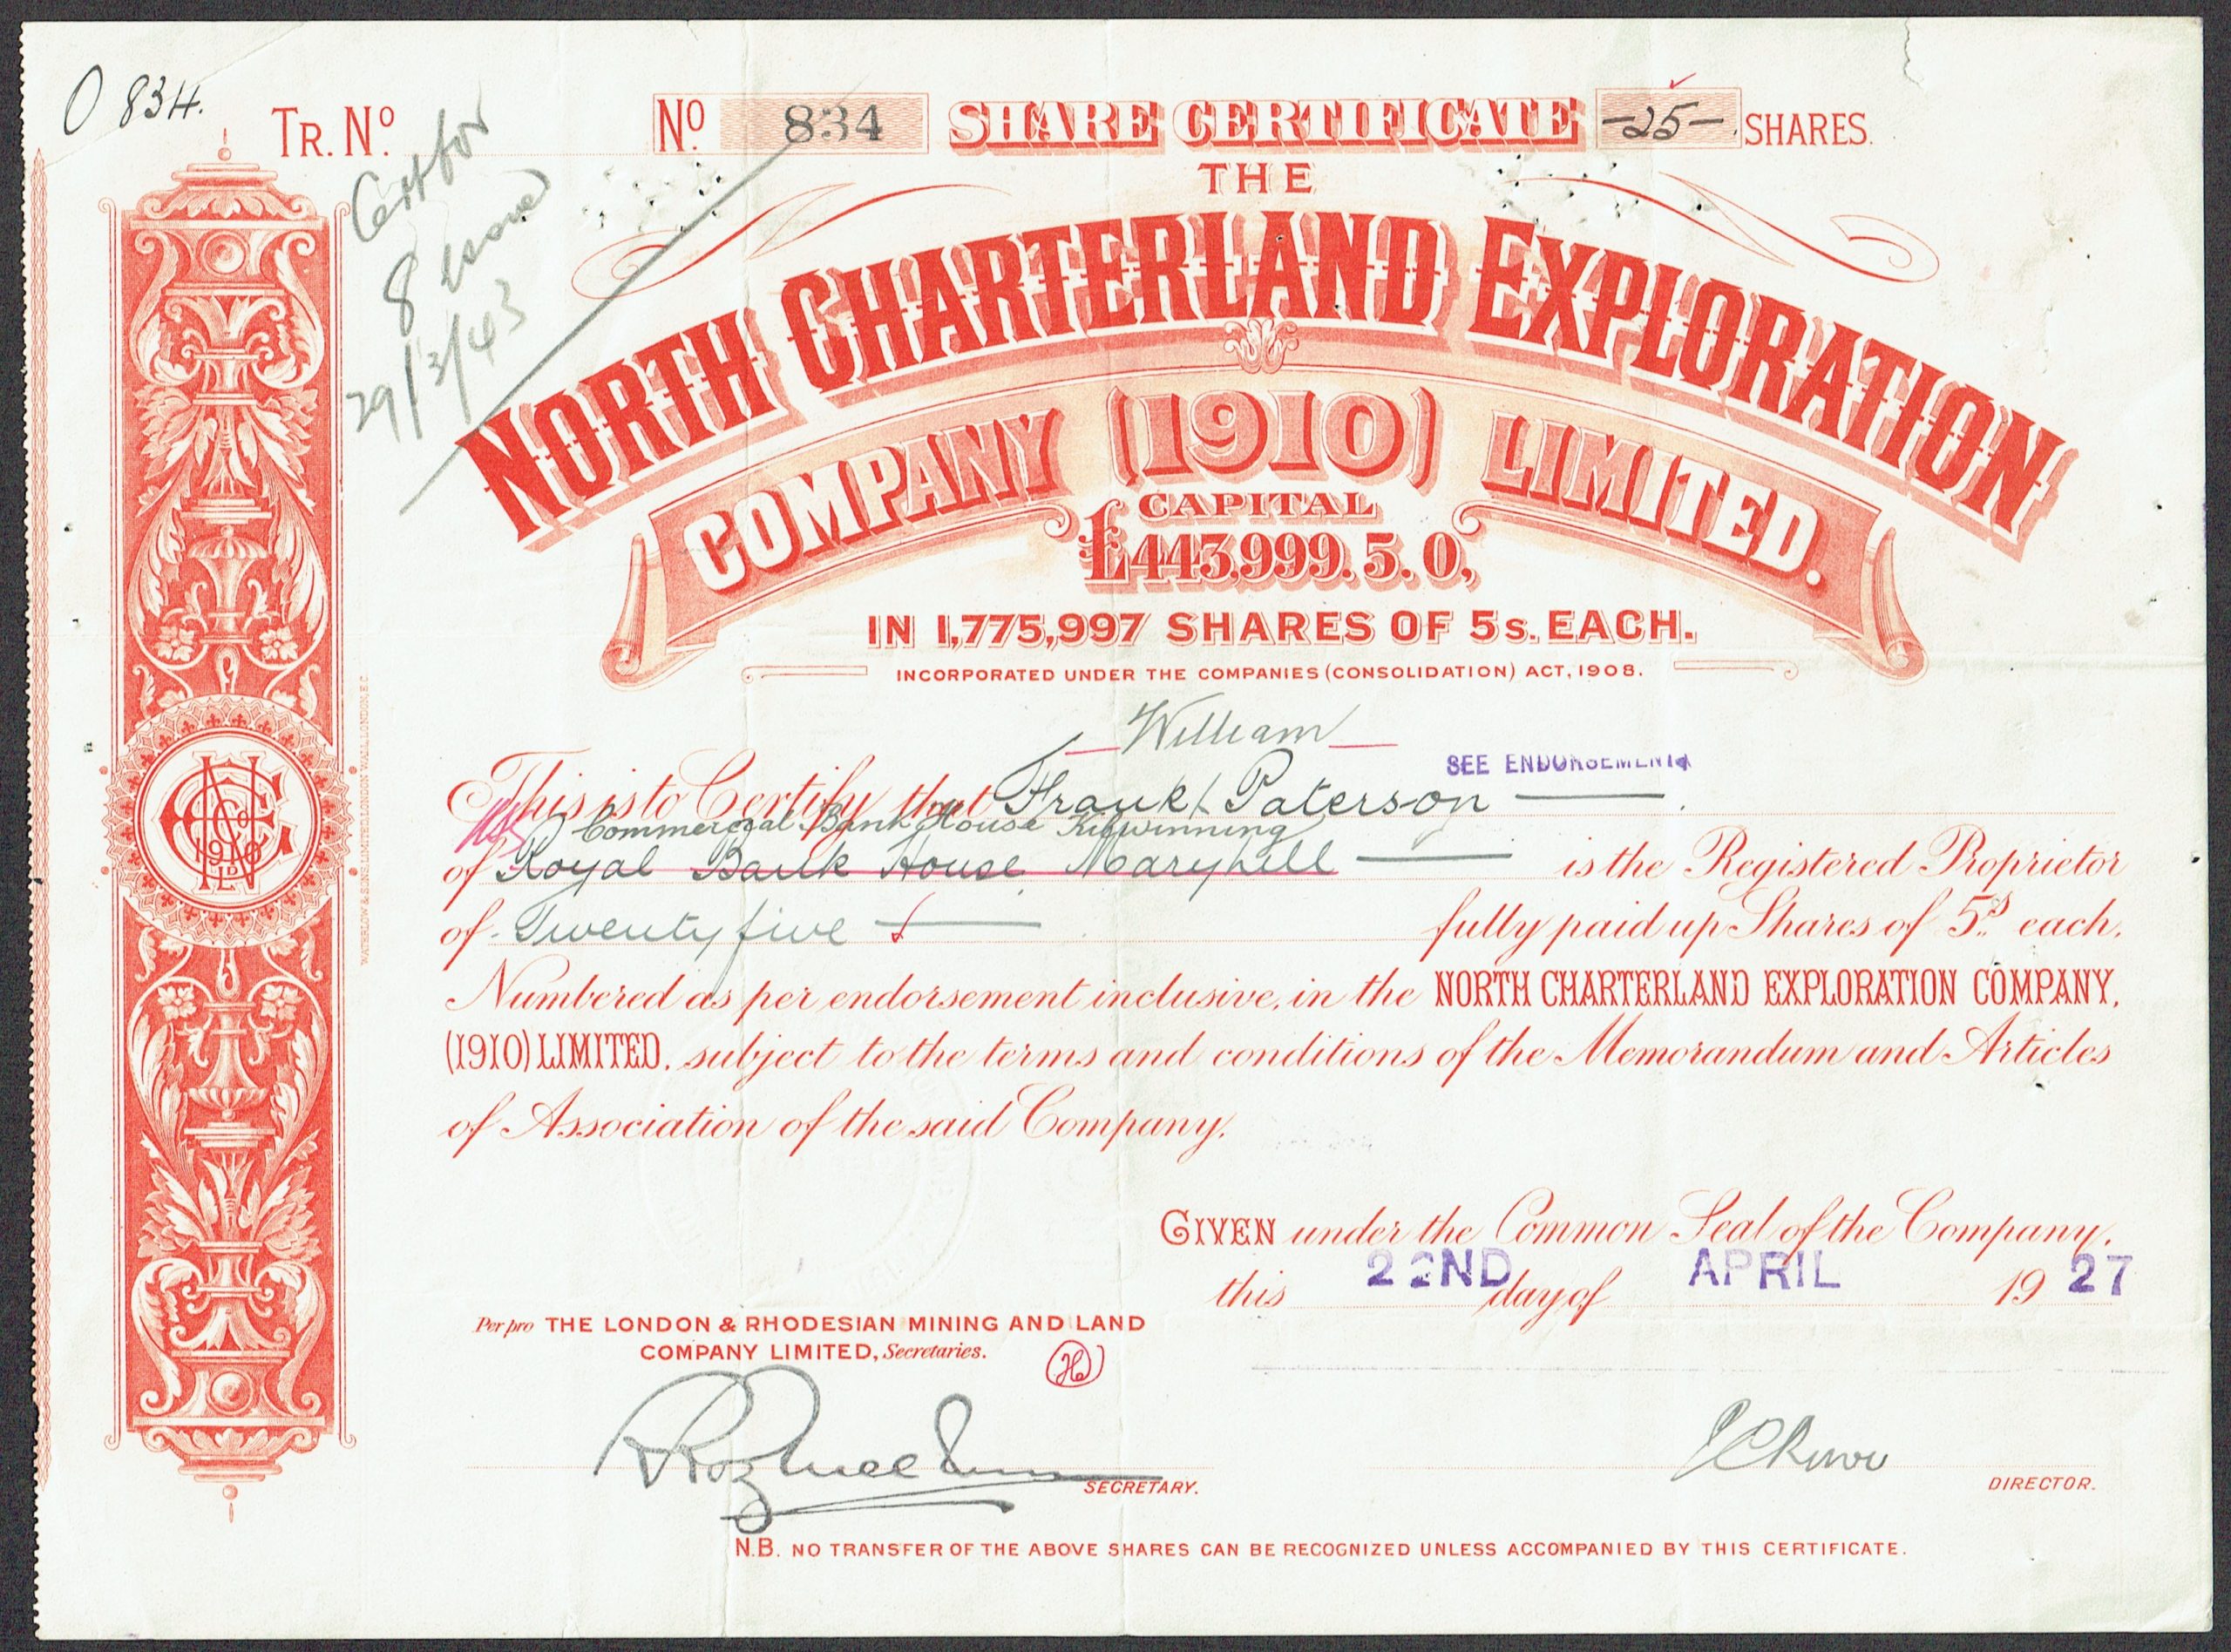 O 834.
TR. Nº
Nº 834 SHARE CERTIFICATE -25- SHARES.
8
29/3/43
THE
NORTH CHARTERLAND EXPLORATION
COMPANY (1910) LIMITED.
CAPITAL
£443,999.5.0,
IN 1,775,997 SHARES OF 5s. EACH.
INCORPORATED UNDER THE COMPANIES (CONSOLIDATION) ACT, 1908.
William
SEE ENDORSEMENT
This is to Certify that Frank Paterson
Commercial Bank House Kilwinning
of Royal Bank House Maryhill is the Registered Proprietor
of Twenty five fully paid up Shares of 5s. each,
Numbered as per endorsement inclusive, in the NORTH CHARTERLAND EXPLORATION COMPANY,
(1910) LIMITED, subject to the terms and conditions of the Memorandum and Articles
of Association of the said Company.
GIVEN under the Common Seal of the Company,
this 22ND day of APRIL 1927
Per pro THE LONDON & RHODESIAN MINING AND LAND
COMPANY LIMITED, Secretaries.
SECRETARY.
DIRECTOR.
N.B. NO TRANSFER OF THE ABOVE SHARES CAN BE RECOGNIZED UNLESS ACCOMPANIED BY THIS CERTIFICATE.
WATERLOW & SONS LIMITED, LONDON WALL, LONDON, E.C
N C E Co 1910 LD